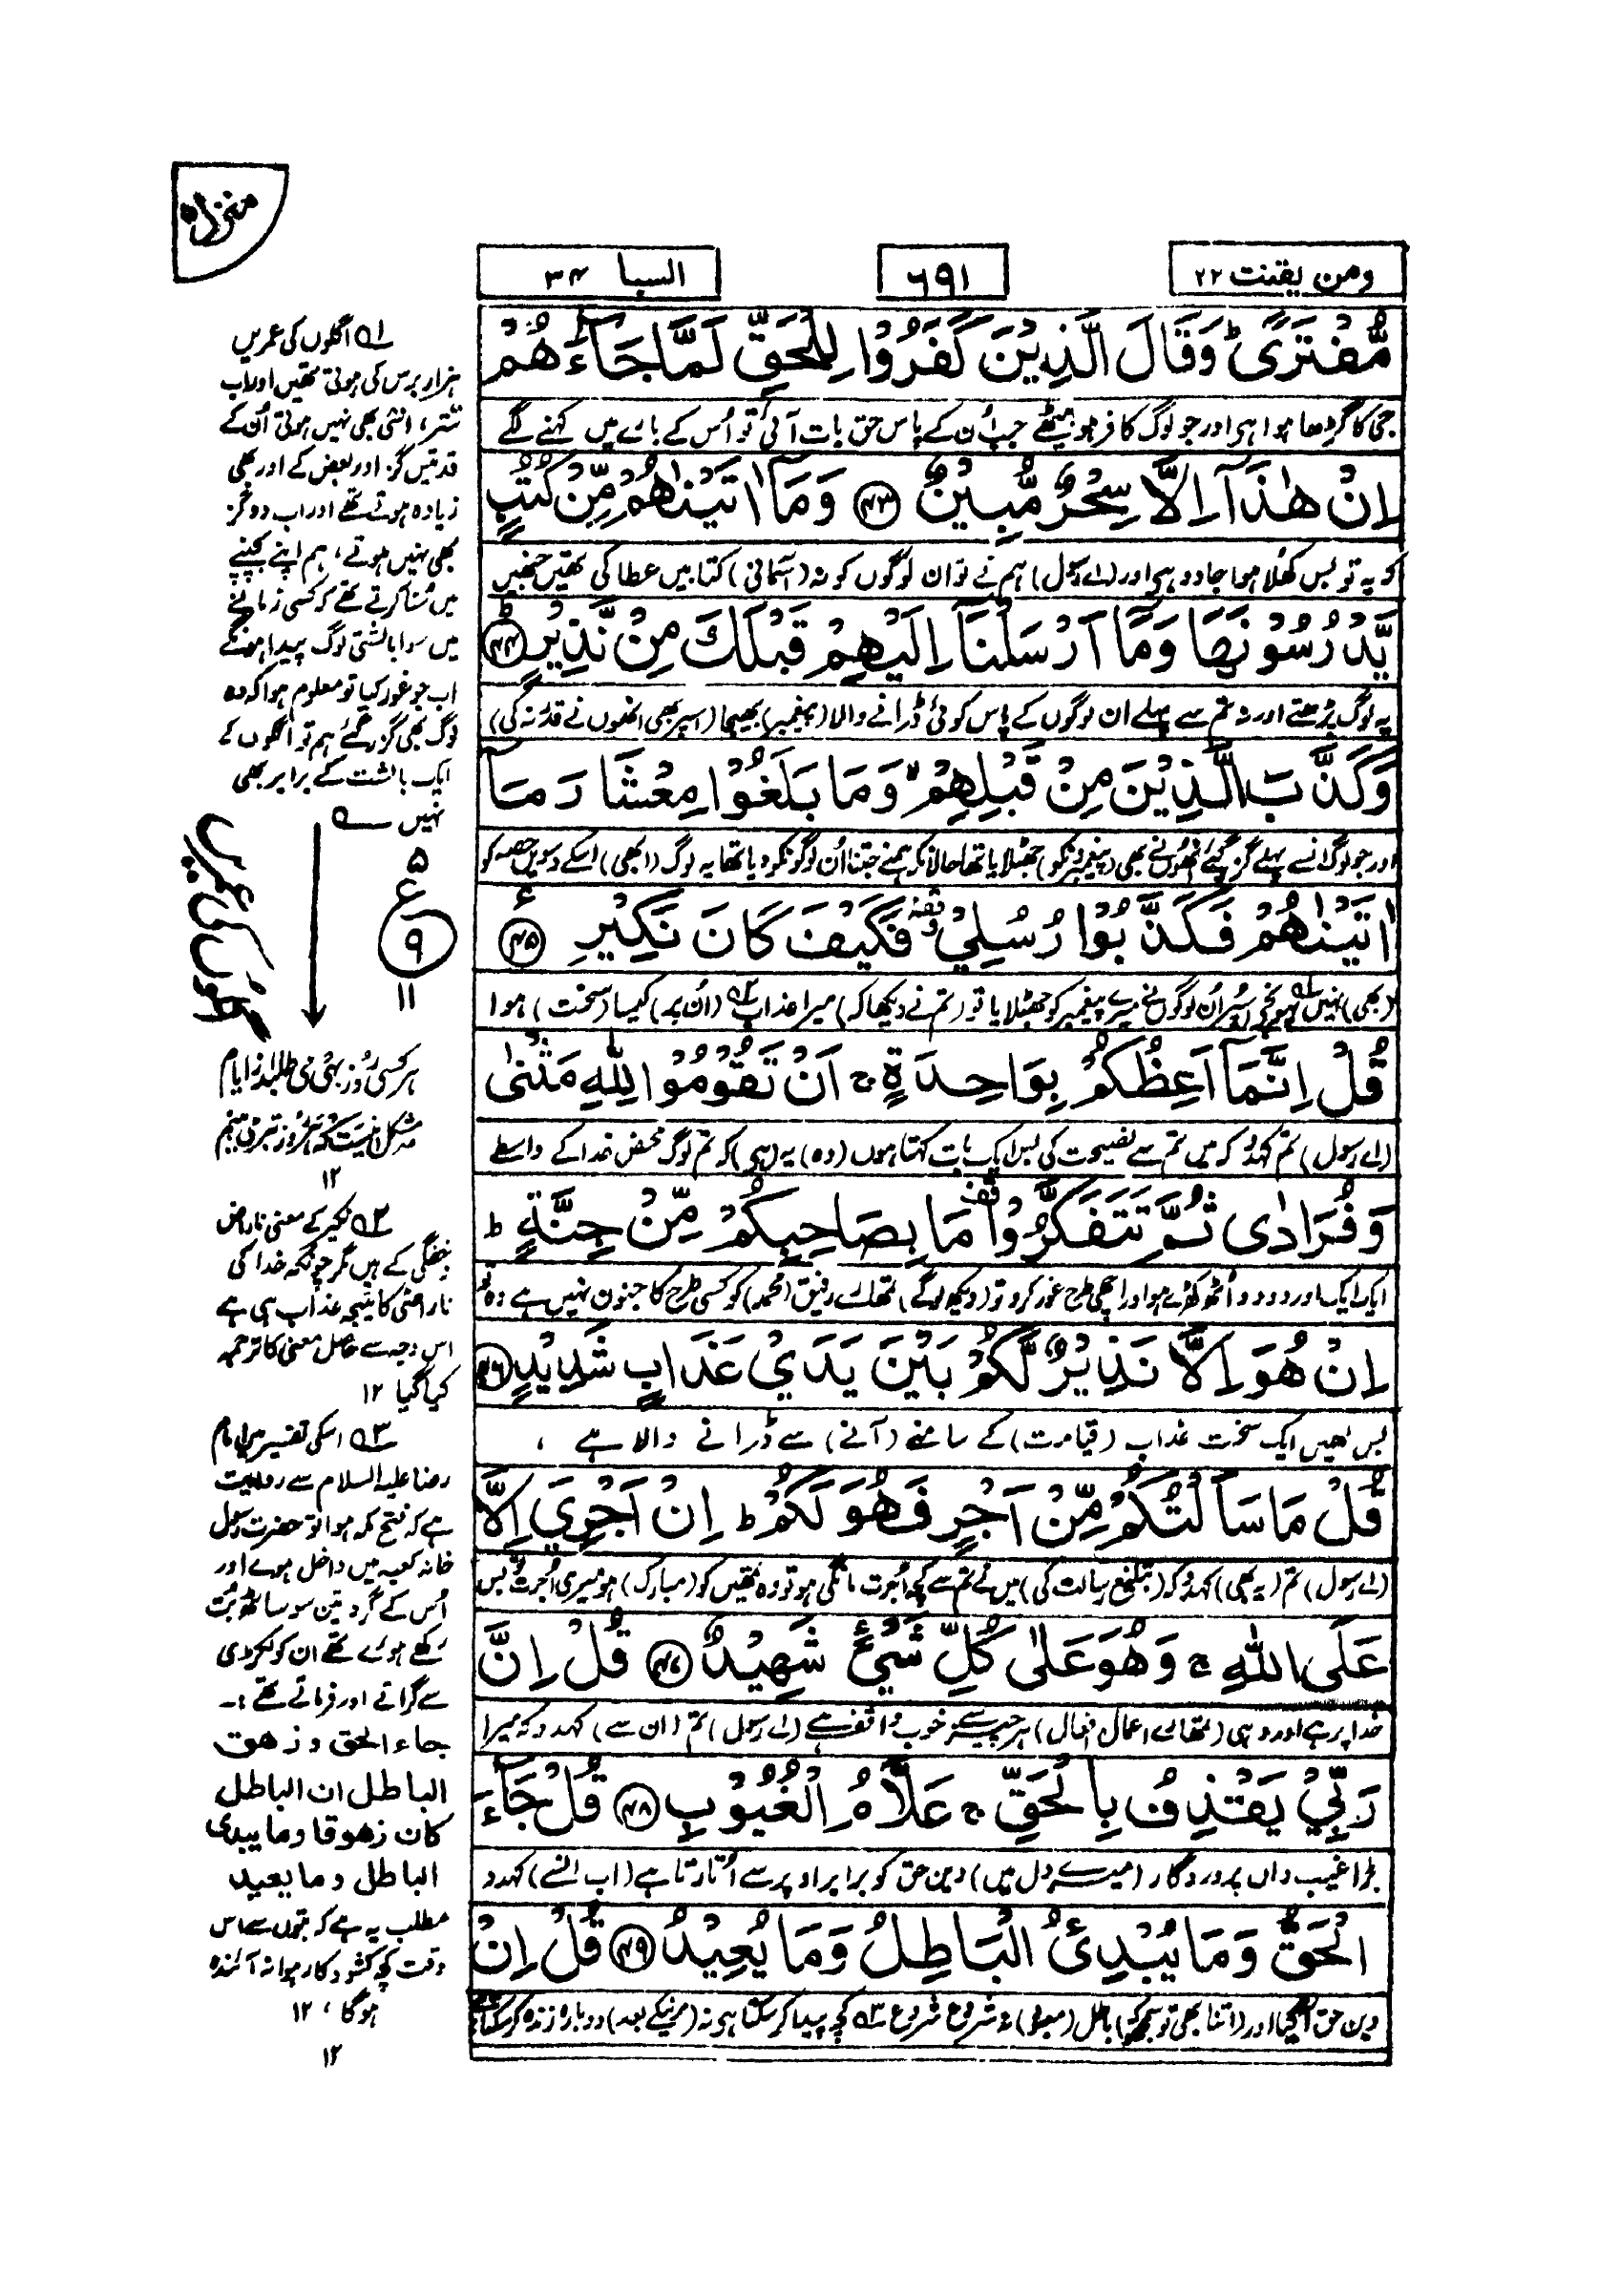 ومن یقنت ۲۲
۶۹۱
السبا ۳۴
منزل ۵
مُّفْتَرًى ؕ وَقَالَ الَّذِيْنَ كَفَرُوْا لِلْحَقِّ لَمَّا جَآءَهُمْ
جی کا گڑھا ہوا ہی اور جو لوگ کافر ہو بیٹھے جب اُن کے پاس حق بات آئی تو اُس کے بارے میں کہنے لگے
اِنْ هٰذَآ اِلَّا سِحْرٌ مُّبِيْنٌ ﴿۴۳﴾ وَمَآ اٰتَيْنٰهُمْ مِّنْ كُتُبٍ
کہ یہ تو بس کھلا ہوا جادو ہی اور (اے رسول) ہم نے تو ان لوگوں کو نہ (آسمانی) کتابیں عطا کی تھیں جنھیں
يَّدْرُسُوْنَهَا وَمَآ اَرْسَلْنَآ اِلَيْهِمْ قَبْلَكَ مِنْ نَّذِيْرٍ ؕ ﴿۴۴﴾
یہ لوگ پڑھتے اور نہ تم سے پہلے ان لوگوں کے پاس کوئی ڈرانے والا (پیغمبر) بھیجا (اسپر بھی انھوں نے قدر نہ کی)
وَكَذَّبَ الَّذِيْنَ مِنْ قَبْلِهِمْ ۙ وَمَا بَلَغُوْا مِعْشَارَ مَآ
اور جو لوگ انسے پہلے گزر گئے اُنھوں نے بھی (پیغمبرونکو) جھٹلایا تھا حالانکہ ہمنے جتنا اُن لوگونکو دیا تھا یہ لوگ (ابھی) اسکے دسویں حصہ کو
اٰتَيْنٰهُمْ فَكَذَّبُوْا رُسُلِيْ قف فَكَيْفَ كَانَ نَكِيْرِ ﴿۴۵﴾ ع
(بھی) نہیں ۱؎ پہونچے اُن لوگوں نے میرے پیغمبر کو جھٹلایا تو (تم نے دیکھا کہ) میرا عذاب ۲؎ (اُن پر) کیسا (سخت) ہوا
قُلْ اِنَّمَآ اَعِظُكُمْ بِوَاحِدَةٍ ۚ اَنْ تَقُوْمُوْا لِلّٰهِ مَثْنٰى
(اے رسول) تم کہدو کہ میں تم سے نصیحت کی بس ایک بات کہتا ہوں (وہ) یہ (ہی) کہ تم لوگ محض خدا کے واسطے
وَفُرَادٰى ثُمَّ تَتَفَكَّرُوْا قف مَا بِصَاحِبِكُمْ مِّنْ جِنَّةٍ ؕ
ایک ایک اور دو دو اُٹھ کھڑے ہو اور اچھی طرح غور کرو تو (دیکھ لوگے) تمھارے رفیق (محمد) کو کسی طرح کا جنون نہیں ہے وہ تو
اِنْ هُوَ اِلَّا نَذِيْرٌ لَّكُمْ بَيْنَ يَدَيْ عَذَابٍ شَدِيْدٍ ﴿۴۶﴾
بس تمھیں ایک سخت عذاب (قیامت) کے سامنے (آنے) سے ڈرانے والا ہے ،
قُلْ مَا سَاَلْتُكُمْ مِّنْ اَجْرٍ فَهُوَ لَكُمْ ؕ اِنْ اَجْرِيَ اِلَّا
(اے رسول) تم (یہ بھی) کہدو کہ (تبلیغ رسالت کی) میں نے تم سے کچھ اُجرت مانگی ہو تو وہ تمھیں کو (مبارک) ہو میری اُجرت تو بس
عَلَى اللّٰهِ ۚ وَهُوَ عَلٰى كُلِّ شَيْءٍ شَهِيْدٌ ﴿۴۷﴾ قُلْ اِنَّ
خدا پر ہے اور وہی (تمھارے اعمال افعال) ہر چیز سے خوب واقف ہے (اے رسول) تم (ان سے) کہدو کہ میرا
رَبِّيْ يَقْذِفُ بِالْحَقِّ ۚ عَلَّامُ الْغُيُوْبِ ﴿۴۸﴾ قُلْ جَآءَ
بڑا غیب داں پروردگار (میرے دل میں) دین حق کو برابر اوپر سے اُتارتا ہے (اب انسے) کہدو
الْحَقُّ وَمَا يُبْدِئُ الْبَاطِلُ وَمَا يُعِيْدُ ﴿۴۹﴾ قُلْ اِنْ
دین حق آ گیا اور (اتنا بھی تو سمجھو کہ) باطل (معبود) نہ شروع شروع ۳؎ کچھ پیدا کر سکتا ہی نہ (مرنیکے بعد) دوبارہ زندہ کر سکتا
۱؎ اگلوں کی عمریں
ہزار برس کی ہوتی تھیں اور اب
ستر، اسّی بھی نہیں ہوتی اُن کے
قد تیس گز اور بعض کے اور بھی
زیادہ ہوتے تھے اور اب دو گز
بھی نہیں ہوتے، ہم اپنے بچپنے
میں سُنا کرتے تھے کہ کسی زمانے
میں سوا بالشتی لوگ پیدا ہونگے
اب جو غور کیا تو معلوم ہوا کہ وہ
لوگ بھی گزر گئے ہم تو اگلوں کے
ایک بالشت کے برابر بھی
نہیں
۵
ع
۹
۱۱
اگلوں کی عمریں
ہر کسی روز بہی می طلبد از ایام
مشکل اینست کہ ہر روز بتر می بینم
۱۲
۲؎ نکیر کے معنی ناراضی
خفگی کے ہیں مگر چونکہ خدا کی
ناراضی کا نتیجہ عذاب ہی ہے
اس وجہ سے حاصل معنی کا ترجمہ
کیا گیا ۱۲
۳؎ اسکی تفسیر میں امام
رضا علیہ السلام سے روایت
ہے کہ فتح مکہ ہوا تو حضرت رسول
خانہ کعبہ میں داخل ہوے اور
اُس کے گرد تین سو ساٹھ بُت
رکھے ہوئے تھے ان کو لکڑی
سے گراتے اور فرماتے تھے :۔
جاء الحق و زهق
الباطل ان الباطل
كان زهوقا وما يبدئ
الباطل وما يعيد
مطلب یہ ہے کہ بتوں سے اس
وقت کچھ کشود کار ہوا نہ آئندہ
ہوگا ، ۱۲
۱۲